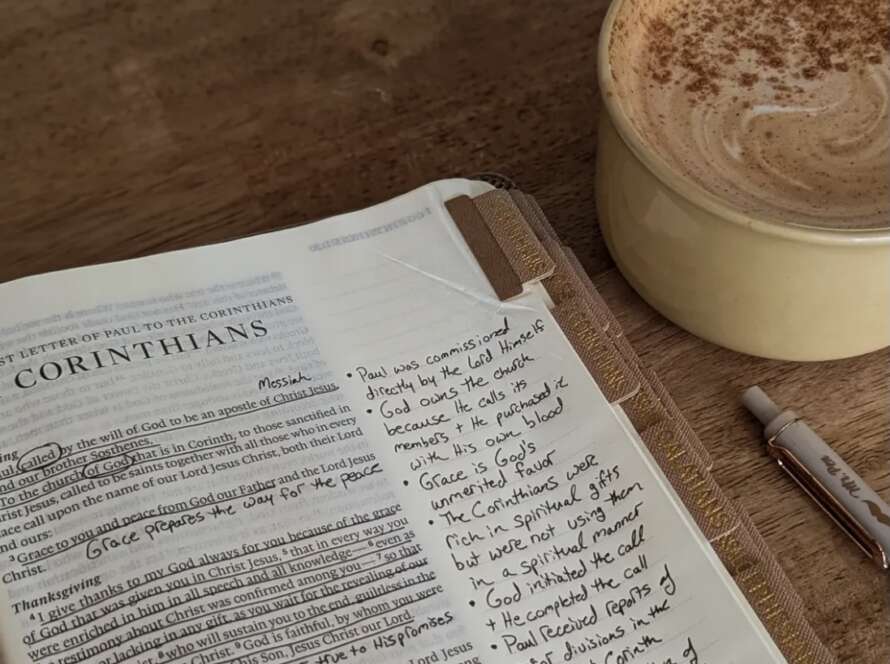 ST LETTER OF PAUL TO THE CORINTHIANS
CORINTHIANS
Messiah
called by the will of God to be an apostle of Christ Jesus,
nd our brother Sosthenes,
To the church of God that is in Corinth, to those sanctified in
rist Jesus, called to be saints together with all those who in every
ace call upon the name of our Lord Jesus Christ, both their Lord
nd ours:
3 Grace to you and peace from God our Father and the Lord Jesus
Christ.
Grace prepares the way for the peace
Thanksgiving
4 I give thanks to my God always for you because of the grace
of God that was given you in Christ Jesus, 5 that in every way you
were enriched in him in all speech and all knowledge— 6 even as
testimony about Christ was confirmed among you— 7 so that
lacking in any gift, as you wait for the revealing of our
Christ, 8 who will sustain you to the end, guiltless in the
Christ. 9 God is faithful, by whom you were
his Son, Jesus Christ our Lord.
true to His promises
Lord Jesus
• Paul was commissioned
directly by the Lord Himself
• God owns the church
because He calls its
members + He purchased it
with His own blood
• Grace is God's
unmerited favor
• The Corinthians were
rich in spiritual gifts
but were not using them
in a spiritual manner
• God initiated the call
+ He completed the call
• Paul received reports of
divisions in the
Corinth
of